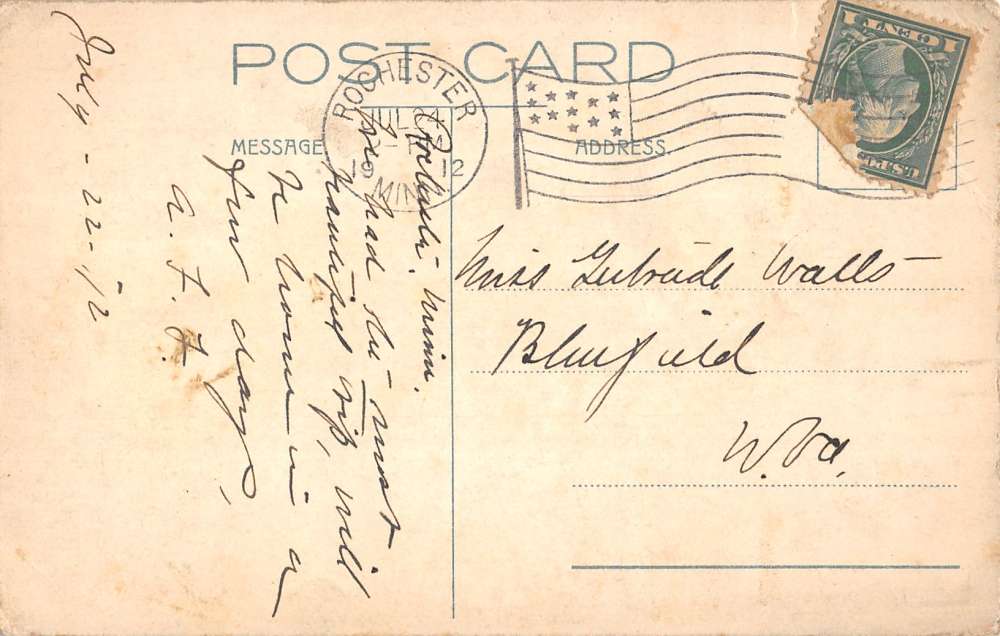 POST CARD
MESSAGE
ADDRESS
ROCHESTER
JUL
19 12
MINN
1 CENT 1
U.S. PO
July - 22-'12
Minn.
Have had the most
beautiful trip, will
be home in a
few days,
A. F. F.
Miss Gertrude Walls
Bluefield
W. Va.